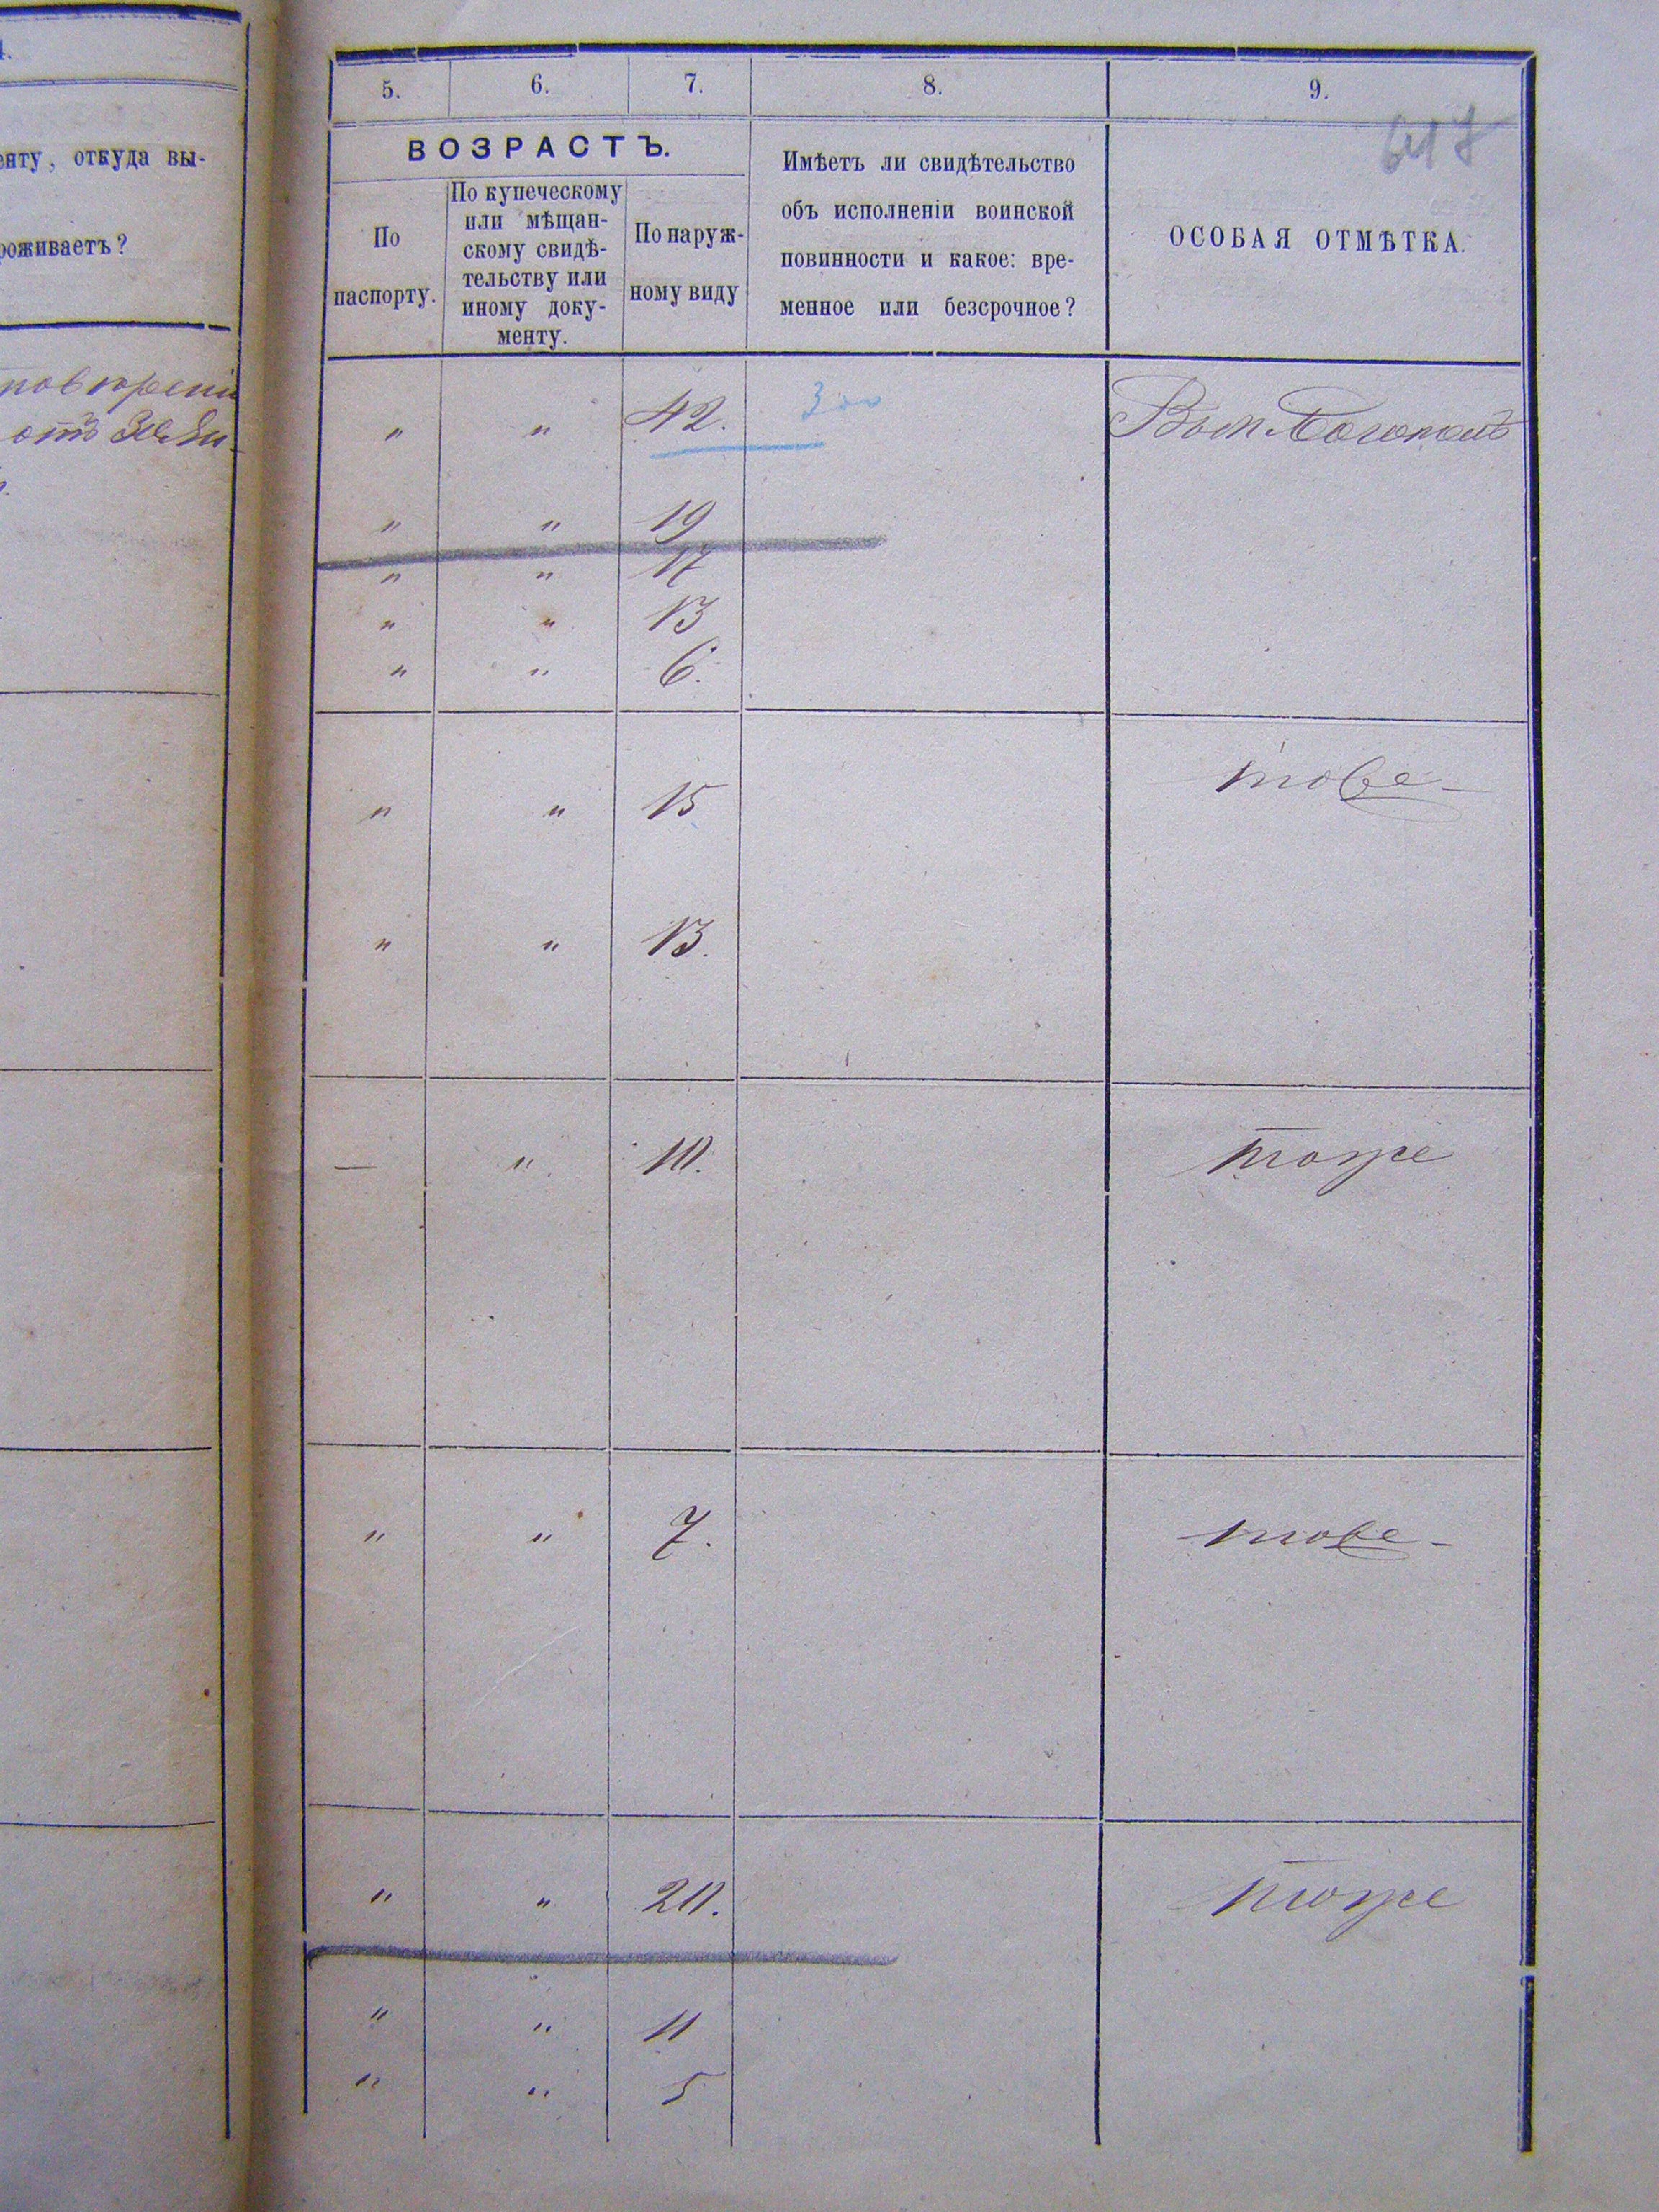 4.
енту, откуда вы-
роживаетъ?
отъ
5. 6. 7. 8. 9.
617
ВОЗРАСТЪ.
По
паспорту.
По купеческому
или мѣщан-
скому свидѣ-
тельству или
иному доку-
менту.
По наруж-
ному виду
Имѣетъ ли свидѣтельство
объ исполненіи воинской
повинности и какое: вре-
менное или безсрочное?
ОСОБАЯ ОТМѢТКА.
" " 42. 300
" " 19
" " 17
" " 13
" " 6.
" " 15 тоже
" " 13.
— " 10. тоже
" " 7. тоже
" " 20. тоже
" " 11
" " 5